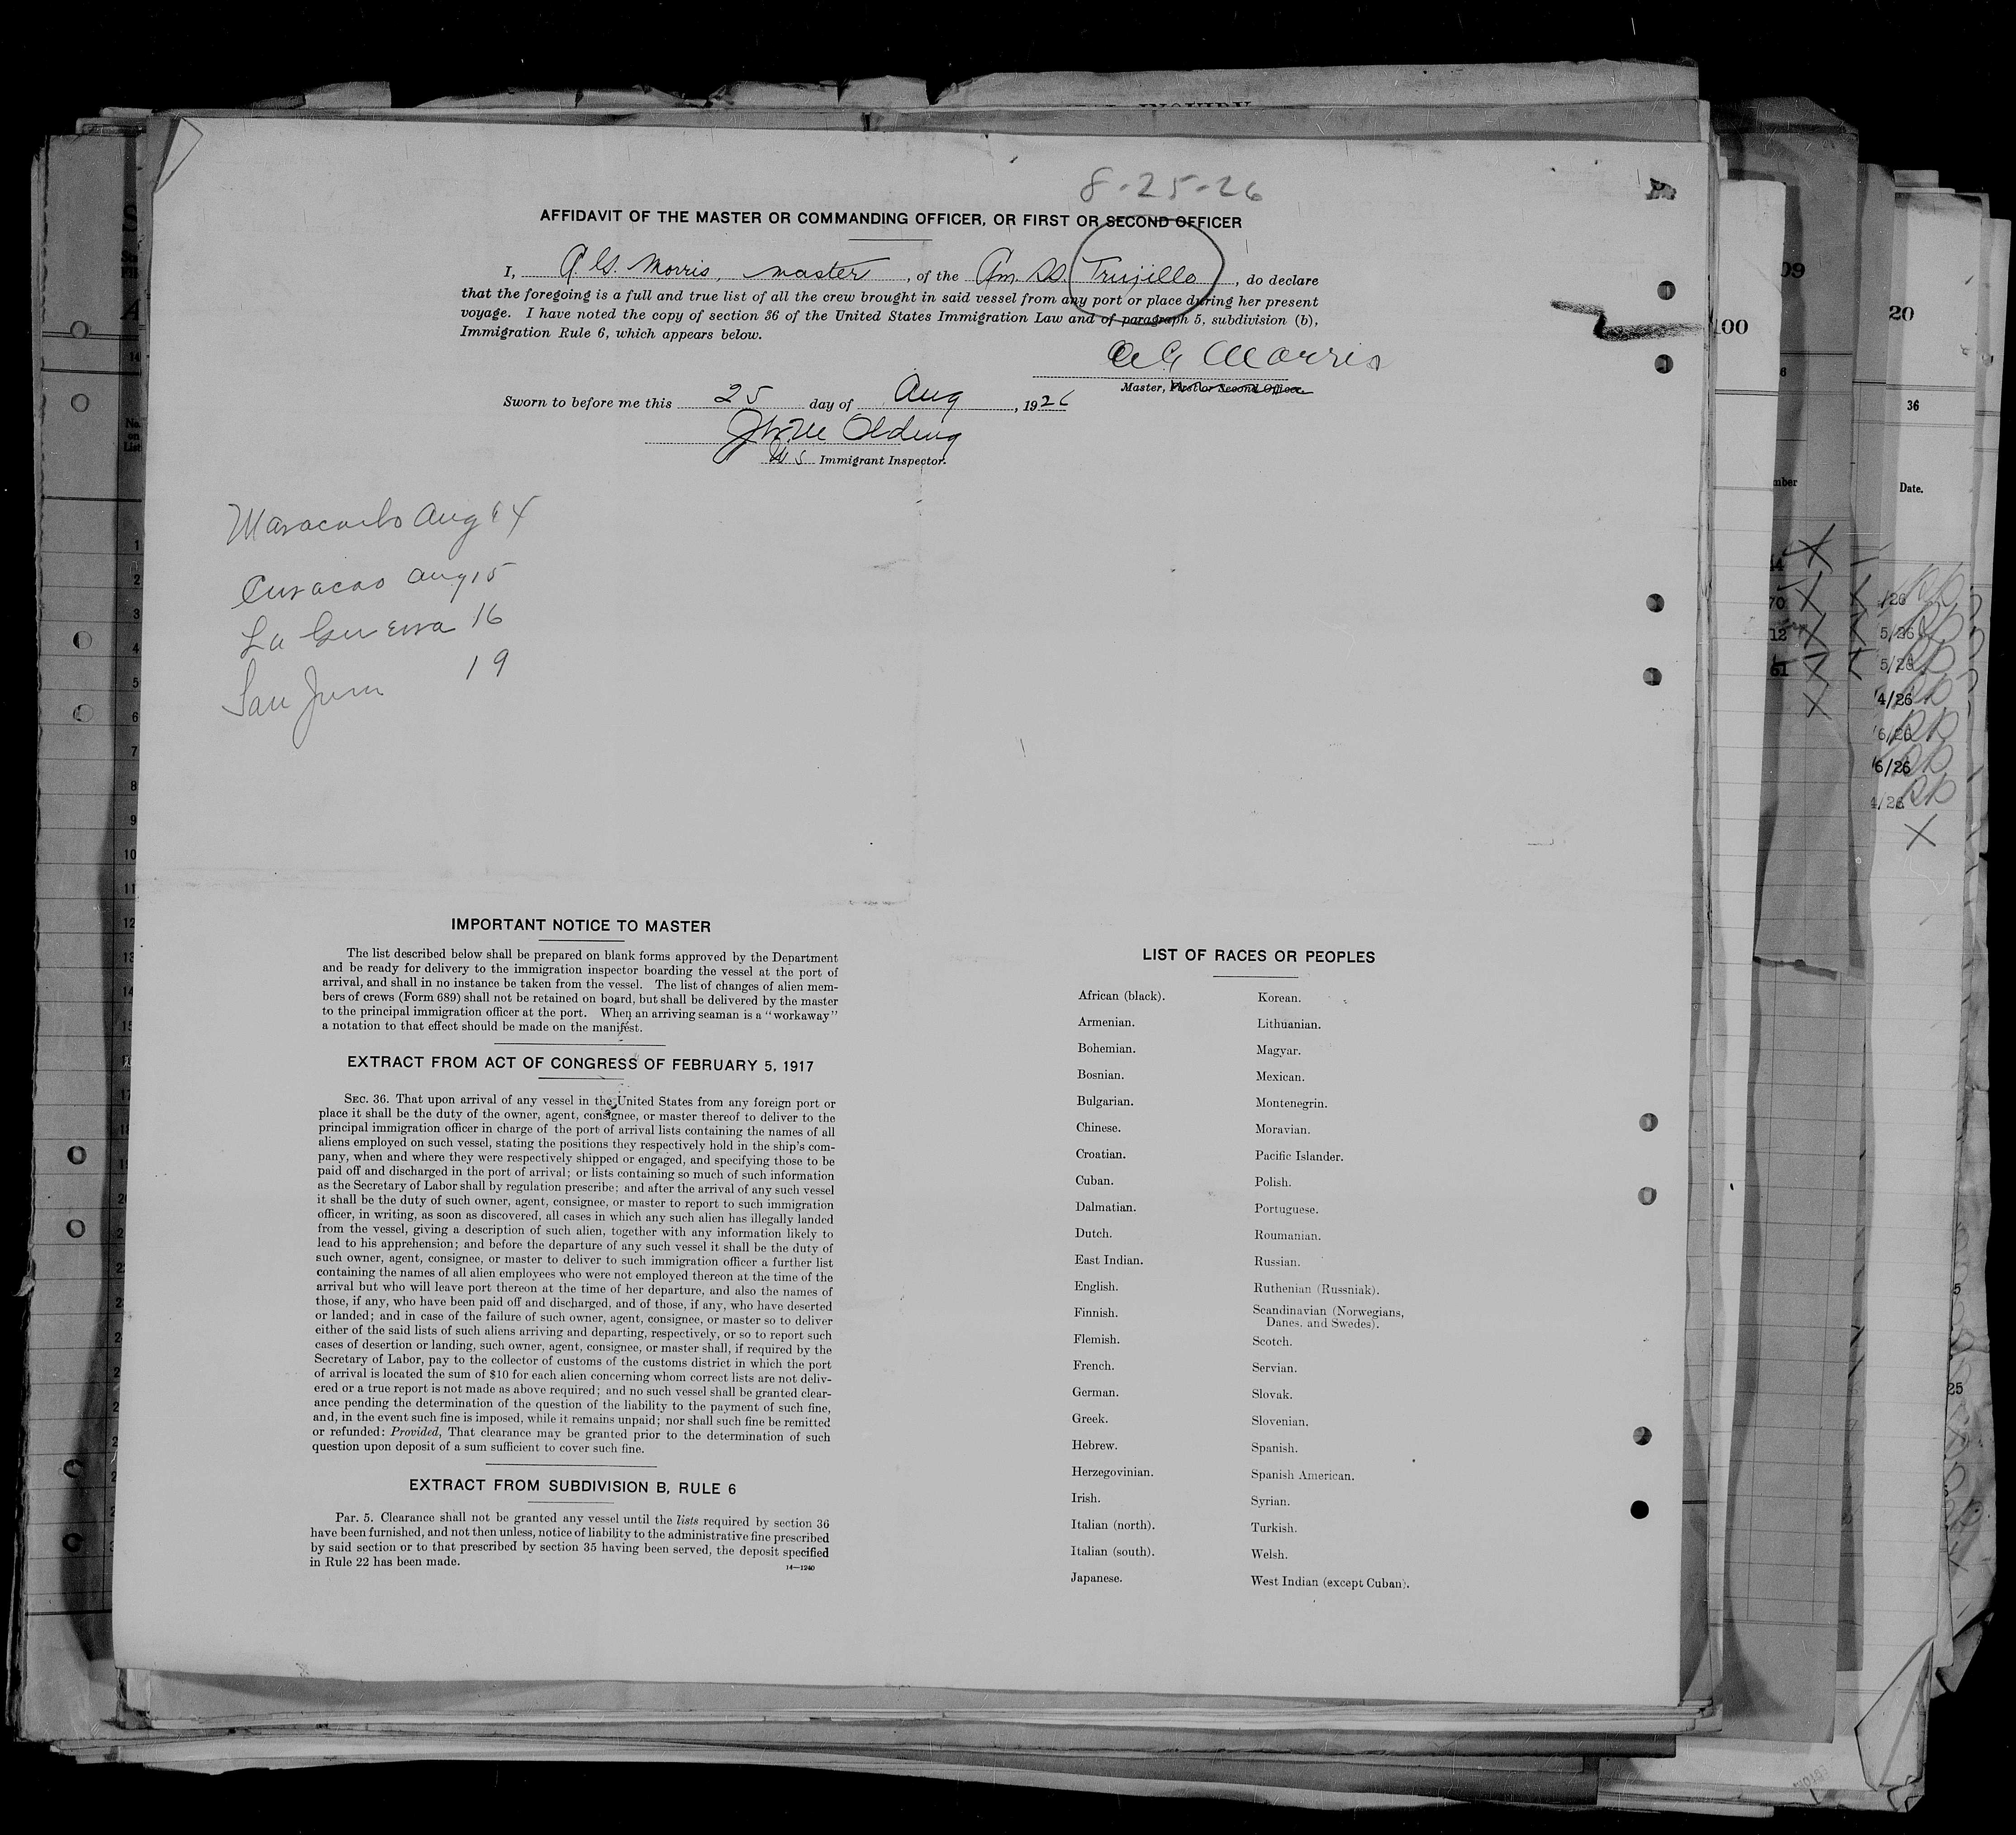 8-25-26
AFFIDAVIT OF THE MASTER OR COMMANDING OFFICER, OR FIRST OR SECOND OFFICER
I, A. G. Morris, master, of the Am. SS. Trujillo, do declare
that the foregoing is a full and true list of all the crew brought in said vessel from any port or place during her present
voyage. I have noted the copy of section 36 of the United States Immigration Law and of paragraph 5, subdivision (b),
Immigration Rule 6, which appears below.
A G Morris
Master, First or Second Officer.
Sworn to before me this 25 day of Aug, 1926
Olding
U S Immigrant Inspector.
Maracaibo Aug 14
Curacao Aug 15
La Guerra 16
San Juan 19
IMPORTANT NOTICE TO MASTER
The list described below shall be prepared on blank forms approved by the Department
and be ready for delivery to the immigration inspector boarding the vessel at the port of
arrival, and shall in no instance be taken from the vessel. The list of changes of alien mem-
bers of crews (Form 689) shall not be retained on board, but shall be delivered by the master
to the principal immigration officer at the port. When an arriving seaman is a "workaway"
a notation to that effect should be made on the manifest.
EXTRACT FROM ACT OF CONGRESS OF FEBRUARY 5, 1917
SEC. 36. That upon arrival of any vessel in the United States from any foreign port or
place it shall be the duty of the owner, agent, consignee, or master thereof to deliver to the
principal immigration officer in charge of the port of arrival lists containing the names of all
aliens employed on such vessel, stating the positions they respectively hold in the ship's com-
pany, when and where they were respectively shipped or engaged, and specifying those to be
paid off and discharged in the port of arrival; or lists containing so much of such information
as the Secretary of Labor shall by regulation prescribe; and after the arrival of any such vessel
it shall be the duty of such owner, agent, consignee, or master to report to such immigration
officer, in writing, as soon as discovered, all cases in which any such alien has illegally landed
from the vessel, giving a description of such alien, together with any information likely to
lead to his apprehension; and before the departure of any such vessel it shall be the duty of
such owner, agent, consignee, or master to deliver to such immigration officer a further list
containing the names of all alien employees who were not employed thereon at the time of the
arrival but who will leave port thereon at the time of her departure, and also the names of
those, if any, who have been paid off and discharged, and of those, if any, who have deserted
or landed; and in case of the failure of such owner, agent, consignee, or master so to deliver
either of the said lists of such aliens arriving and departing, respectively, or so to report such
cases of desertion or landing, such owner, agent, consignee, or master shall, if required by the
Secretary of Labor, pay to the collector of customs of the customs district in which the port
of arrival is located the sum of $10 for each alien concerning whom correct lists are not deliv-
ered or a true report is not made as above required; and no such vessel shall be granted clear-
ance pending the determination of the question of the liability to the payment of such fine,
and, in the event such fine is imposed, while it remains unpaid; nor shall such fine be remitted
or refunded: Provided, That clearance may be granted prior to the determination of such
question upon deposit of a sum sufficient to cover such fine.
EXTRACT FROM SUBDIVISION B, RULE 6
Par. 5. Clearance shall not be granted any vessel until the lists required by section 36
have been furnished, and not then unless, notice of liability to the administrative fine prescribed
by said section or to that prescribed by section 35 having been served, the deposit specified
in Rule 22 has been made.
14—1240
LIST OF RACES OR PEOPLES
African (black). Korean.
Armenian. Lithuanian.
Bohemian. Magyar.
Bosnian. Mexican.
Bulgarian. Montenegrin.
Chinese. Moravian.
Croatian. Pacific Islander.
Cuban. Polish.
Dalmatian. Portuguese.
Dutch. Roumanian.
East Indian. Russian.
English. Ruthenian (Russniak).
Finnish. Scandinavian (Norwegians,
Danes, and Swedes).
Flemish. Scotch.
French. Servian.
German. Slovak.
Greek. Slovenian.
Hebrew. Spanish.
Herzegovinian. Spanish American.
Irish. Syrian.
Italian (north). Turkish.
Italian (south). Welsh.
Japanese. West Indian (except Cuban).
20
36
Date.